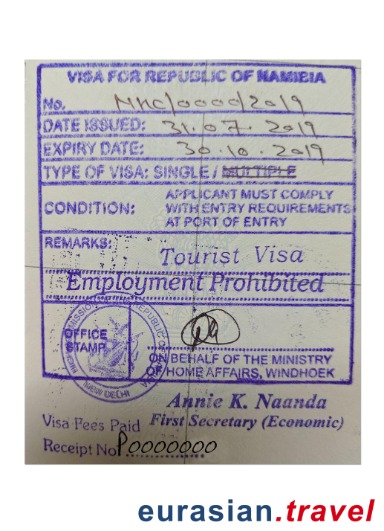 VISA FOR REPUBLIC OF NAMIBIA
No. NHC/0000/2019
DATE ISSUED: 31.07.2019
EXPIRY DATE: 30.10.2019
TYPE OF VISA: SINGLE / MULTIPLE
CONDITION: APPLICANT MUST COMPLY
WITH ENTRY REQUIREMENTS
AT PORT OF ENTRY
REMARKS:
Tourist Visa
Employment Prohibited
OFFICE
STAMP
NEW DELHI
ON BEHALF OF THE MINISTRY
OF HOME AFFAIRS, WINDHOEK
Annie K. Naanda
First Secretary (Economic)
Visa Fees Paid
Receipt No P0000000
eurasian.travel